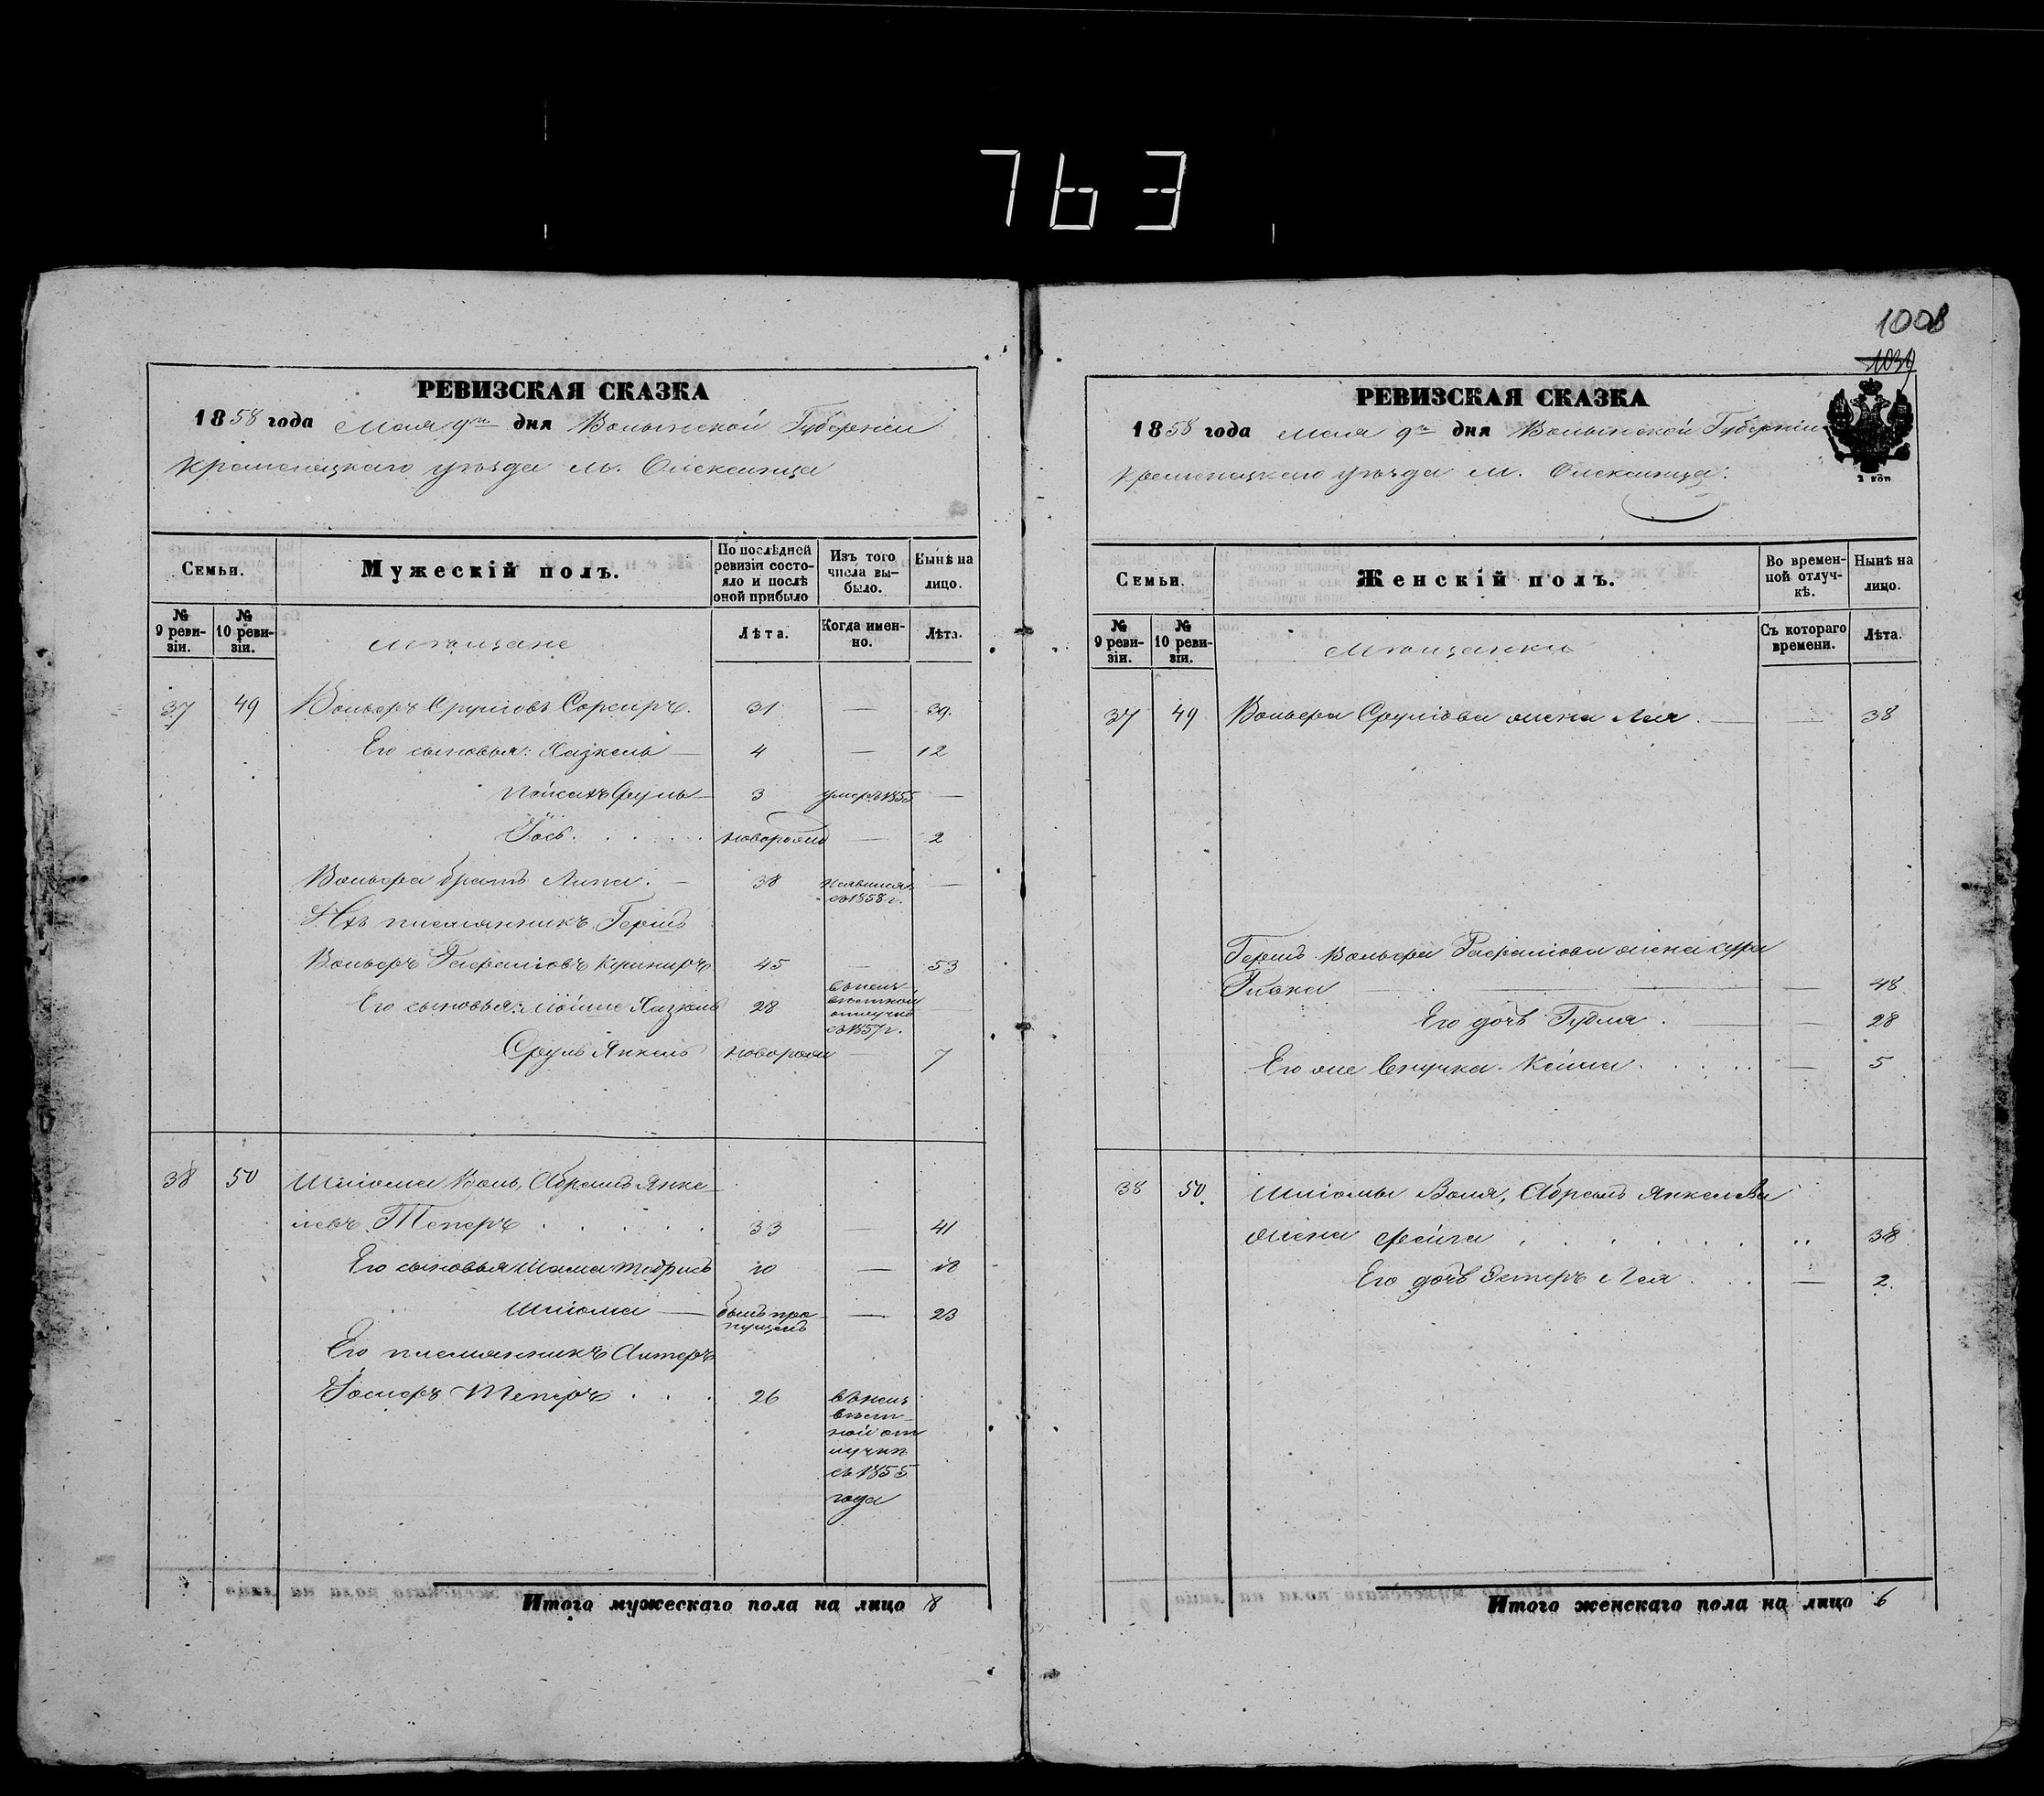 763
1008
1039
РЕВИЗСКАЯ СКАЗКА
1858 года Мая 9го дня Волынской Губерніи
Кременецкаго уѣзда м. Олексинца
Семьи.
Мужескій полъ.
По послѣдней ревизіи состояло и послѣ оной прибыло
Изъ того числа выбыло.
Нынѣ на лицо.
№ 9 ревизіи.
№ 10 ревизіи.
Мѣщане
Лѣта.
Когда именно.
Лѣта.
37 49 Вольфъ Сруліовъ 31 — 39.
Его сыновья: Хазкель — 4 — 12
Пейсахъ Сруль — 3 умеръ 1855 —
Іось . . . . новорожд — 2
Вольфа братъ Липа. — 38 — 
съ 1858 г.
Ихъ племянникъ Гершъ
Вольфъ Рафаиловъ Кушниръ 45 — 53
Его сыновья: Мойше Хазкель 28 въ неизвѣстной отлучкѣ съ 1857 г. —
Сруль Янкель новорожд — 7
38 50 Шліома Воль, Абрамъ Янкелевъ
Теперъ . . . . . 33 — 41
Его сыновья 10 — 18
Шліома — былъ пропущенъ — 23
Его племянникъ Алтеръ
Іосифъ Теперъ . . . 26 въ неизвѣстной отлучкѣ съ 1855 года
Итого мужескаго пола на лицо 8
РЕВИЗСКАЯ СКАЗКА
1858 года Мая 9го дня Волынской Губерніи
Кременецкаго уѣзда м. Олексинца.
2 коп
Семьи.
Женскій полъ.
Во временной отлучкѣ.
Нынѣ на лицо.
№ 9 ревизіи.
№ 10 ревизіи.
Мѣщанки
Съ котораго времени.
Лѣта.
37 49 Вольфа Сруліова жена Лея. — — 38
Гершъ Вольфа Рафаилова жена Сура
Ривка — — — 48
Его дочь Гудля. — — 28
Его же внучка Кейла. . . . — 5
38 50. Шліомы Воля, Абрамъ Янкелева
жена Фейга . . . . . . 38
Его дочь Эстеръ Лея . . — 2.
Итого женскаго пола на лицо 6